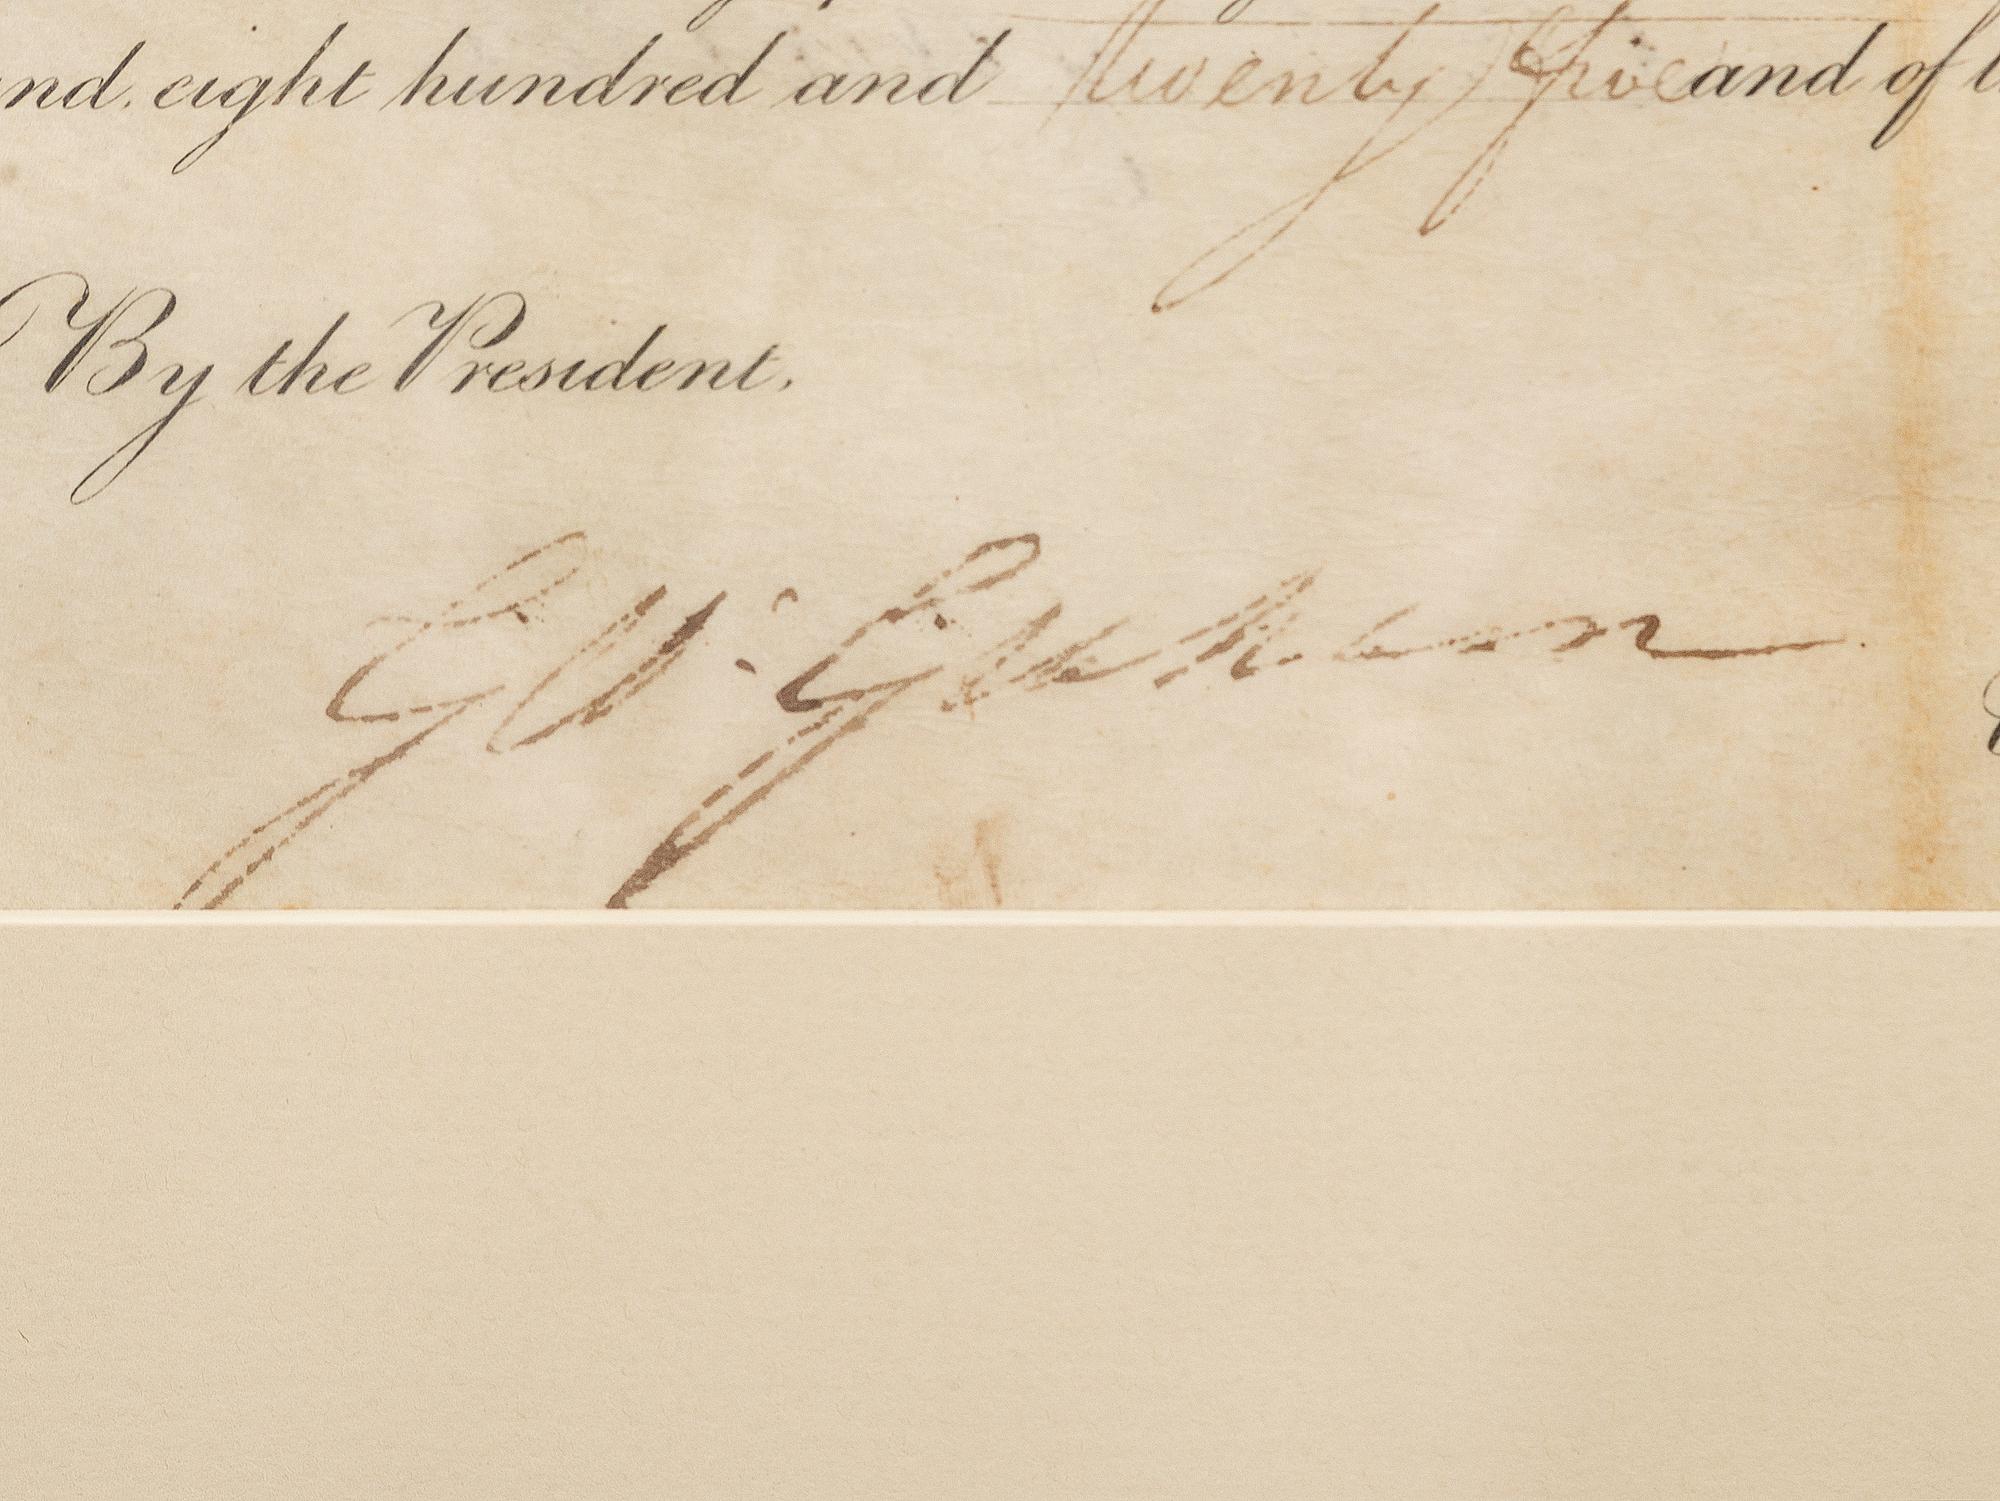 nd. eight hundred and twenty five and of t
By the President,
G W. Graham